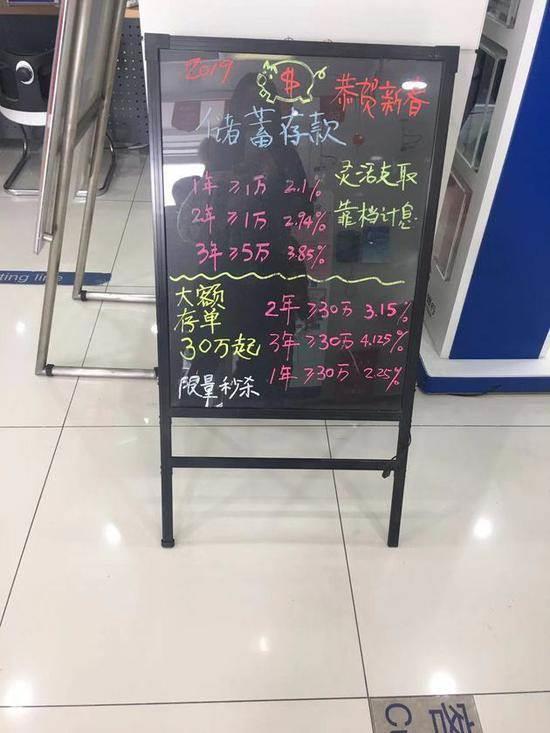 2019
$
恭贺新春
储蓄存款
1年 ≥1万 2.1%
2年 ≥1万 2.94%
3年 ≥5万 3.85%
灵活支取
靠档计息
大额
存单
30万起
限量秒杀
2年 ≥30万 3.15%
3年 ≥30万 4.125%
1年 ≥30万 2.25%
ting line
客